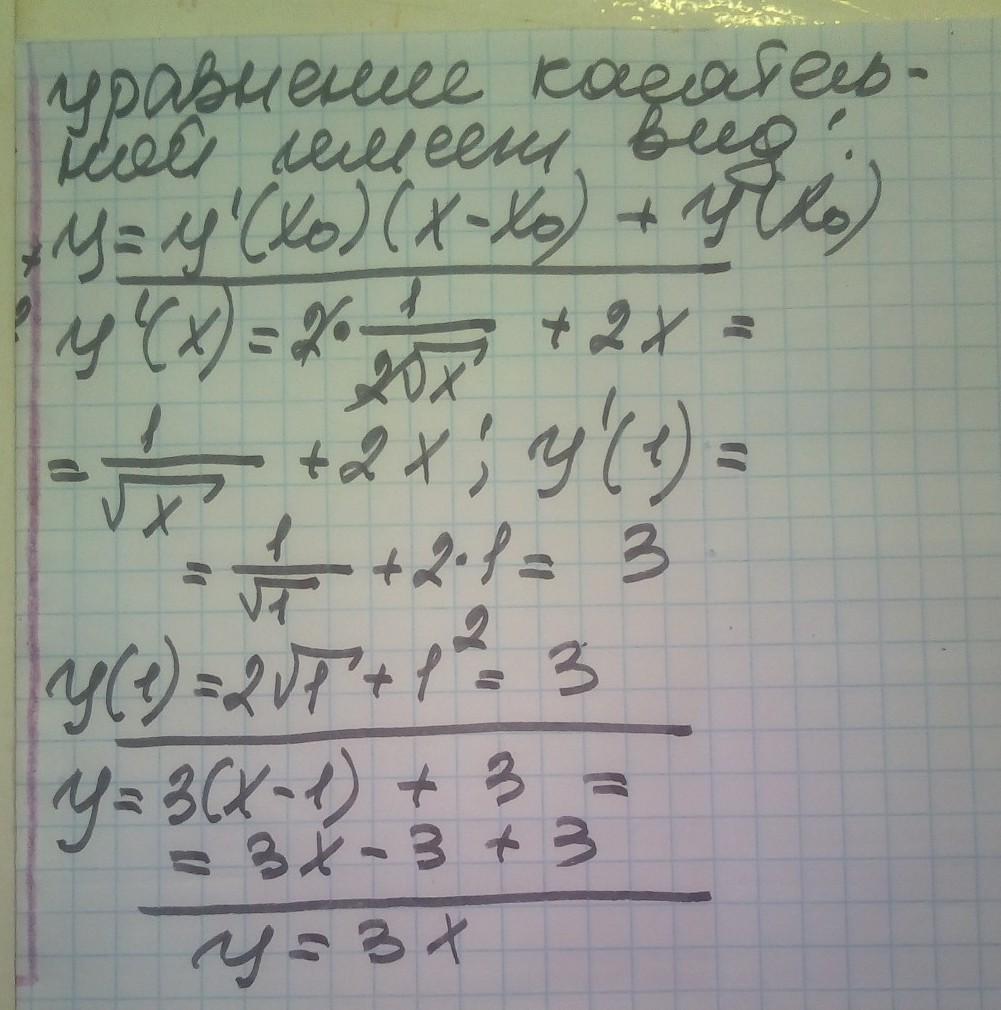 уравнение касатель-
ной имеет вид:
y = y'(x₀)(x-x₀) + y(x₀)
y'(x) = 2·1/(2√x) + 2x =
= 1/√x + 2x; y'(1) =
= 1/√1 + 2·1 = 3
y(1) = 2√1 + 1² = 3
y = 3(x-1) + 3 =
= 3x - 3 + 3
y = 3x